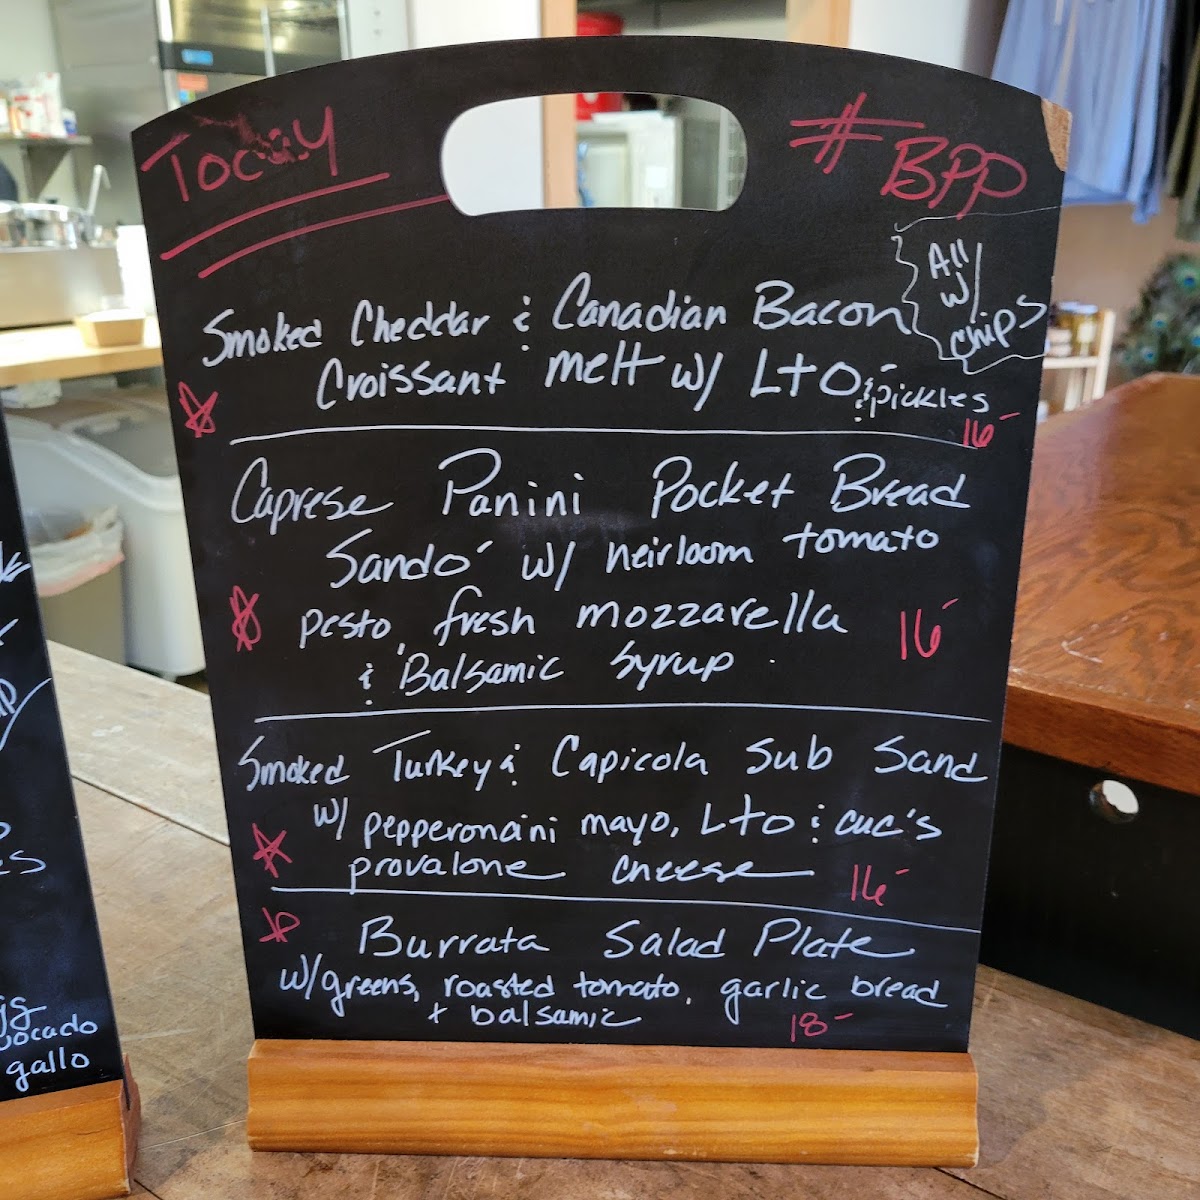 Today
#BPP
All
w/
chips
Smoked Cheddar & Canadian Bacon
Croissant melt w/ LTO & pickles
16-
Caprese Panini Pocket Bread
Sando w/ heirloom tomato
pesto, fresh mozzarella
16-
& Balsamic Syrup
Smoked Turkey & Capicola Sub Sand
w/ pepperoncini mayo, LTO & cuc's
provalone cheese
16-
Burrata Salad Plate
w/greens, roasted tomato, garlic bread
+ balsamic
18-
gallo